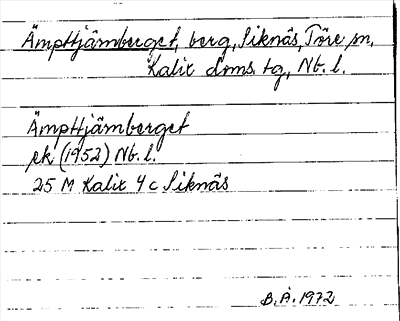 Ämpttjämberget, berg, Siknäs, Töre sn,
Kalix doms. tg, Nb. l.
Ämpttjämberget
ek (1952) Nb. l.
25 M Kalix 4c Siknäs
B.Å. 1972